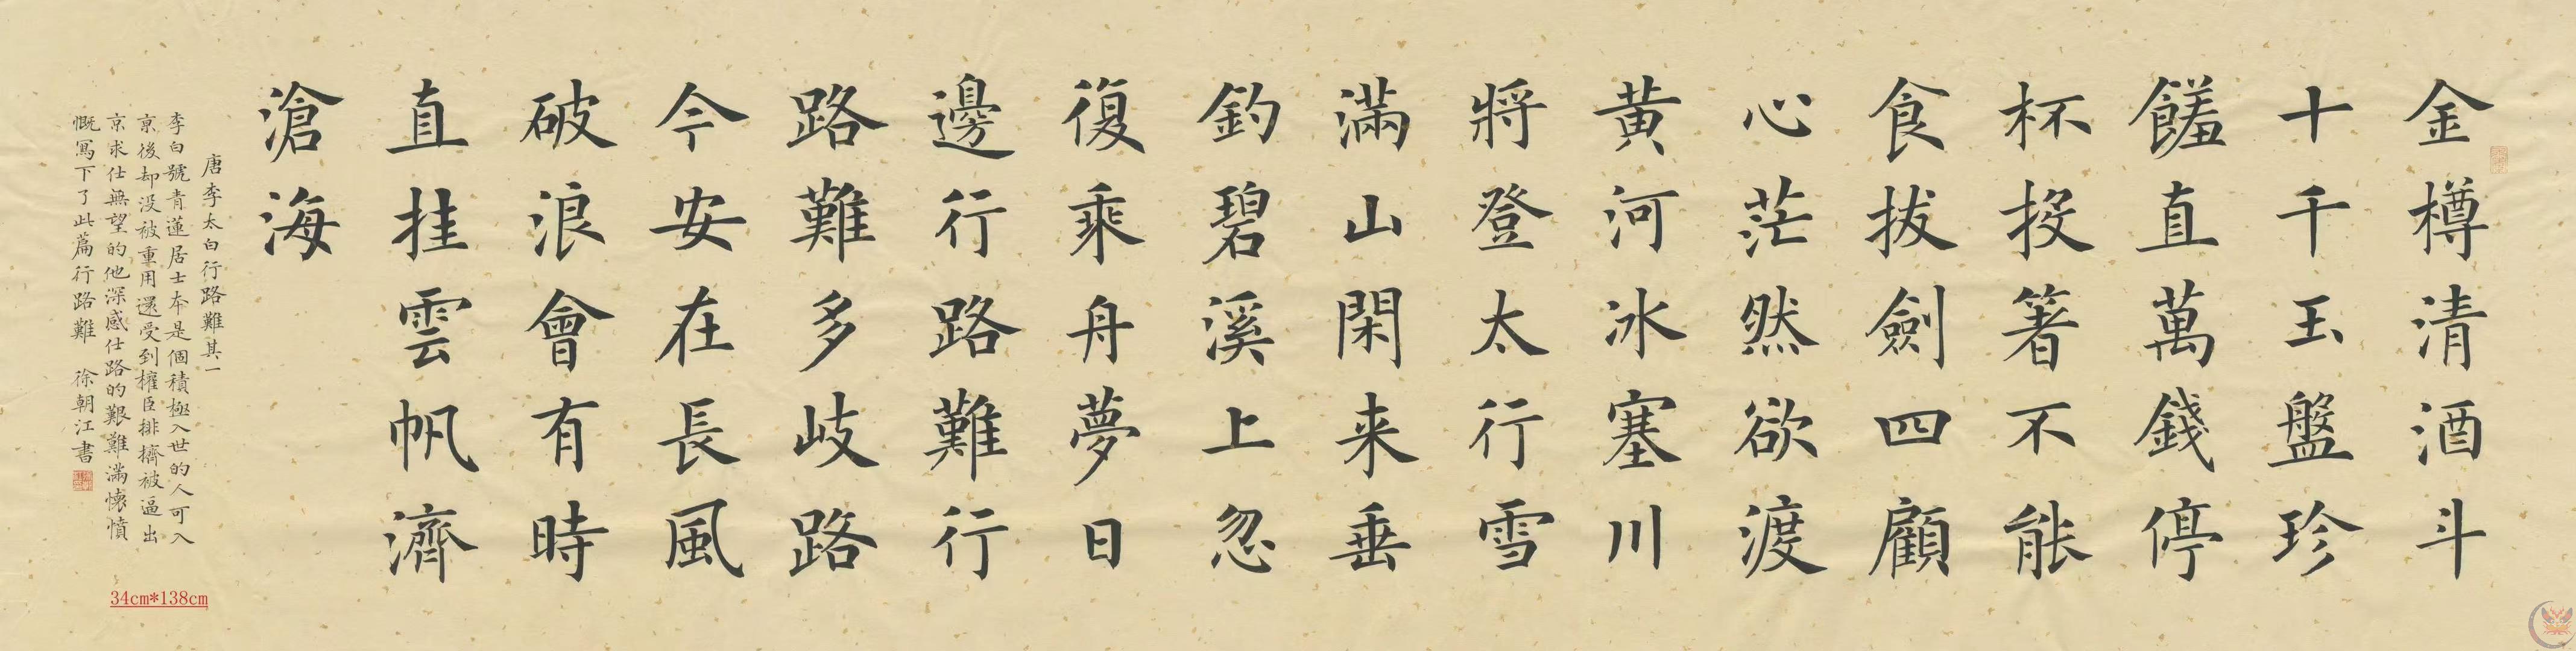 金樽清酒斗
十千玉盤珍
饈直萬錢停
杯投箸不能
食拔劍四顧
心茫然欲渡
黃河冰塞川
將登太行雪
滿山閑来垂
釣碧溪上忽
復乘舟夢日
邊行路難行
路難多歧路
今安在長風
破浪會有時
直挂雲帆濟
滄海
唐李太白行路難其一
李白號青蓮居士本是個積極入世的人可入
京後却没被重用還受到權臣排擠被逼出
京求仕無望的他深感仕路的艱難滿懷憤
慨寫下了此篇行路難 徐朝江書
34cm*138cm